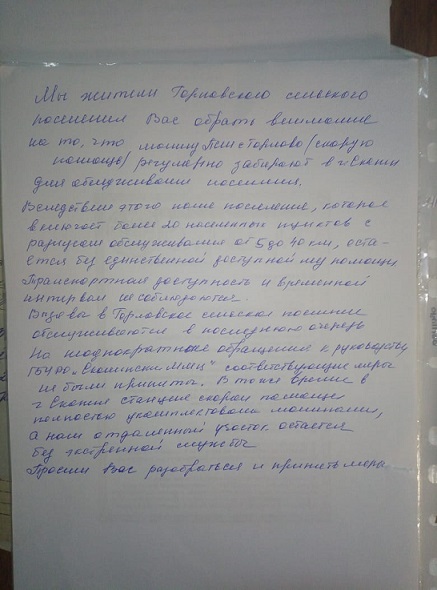 Мы жители Горловского сельского
поселения Вас обрать внимание
на то, что машину Горлово/скорую
помощь/ регулярно забирают в г Скопин
для обслуживания поселения.
Вследствие этого наше поселение, которое
включает более 20 населенных пунктов с
радиусом обслуживания от 5 до 40 км, оста-
ется без единственной доступной мед помощи
Транспортная доступность и временной
интервал не соблюдаются.
Вызова в Горловское сельское поселение
обслуживаются в последнюю очередь
На неоднократные обращения к руководству
ГБУ РО „Скопинский ММЦ" соответствующие меры
не были приняты. В тоже время в
г Скопине станция скорой помощи
полностью укомплектована машинами,
а наш отдаленный участок остается
без экстренной службы
Просим Вас разобраться и принять меры